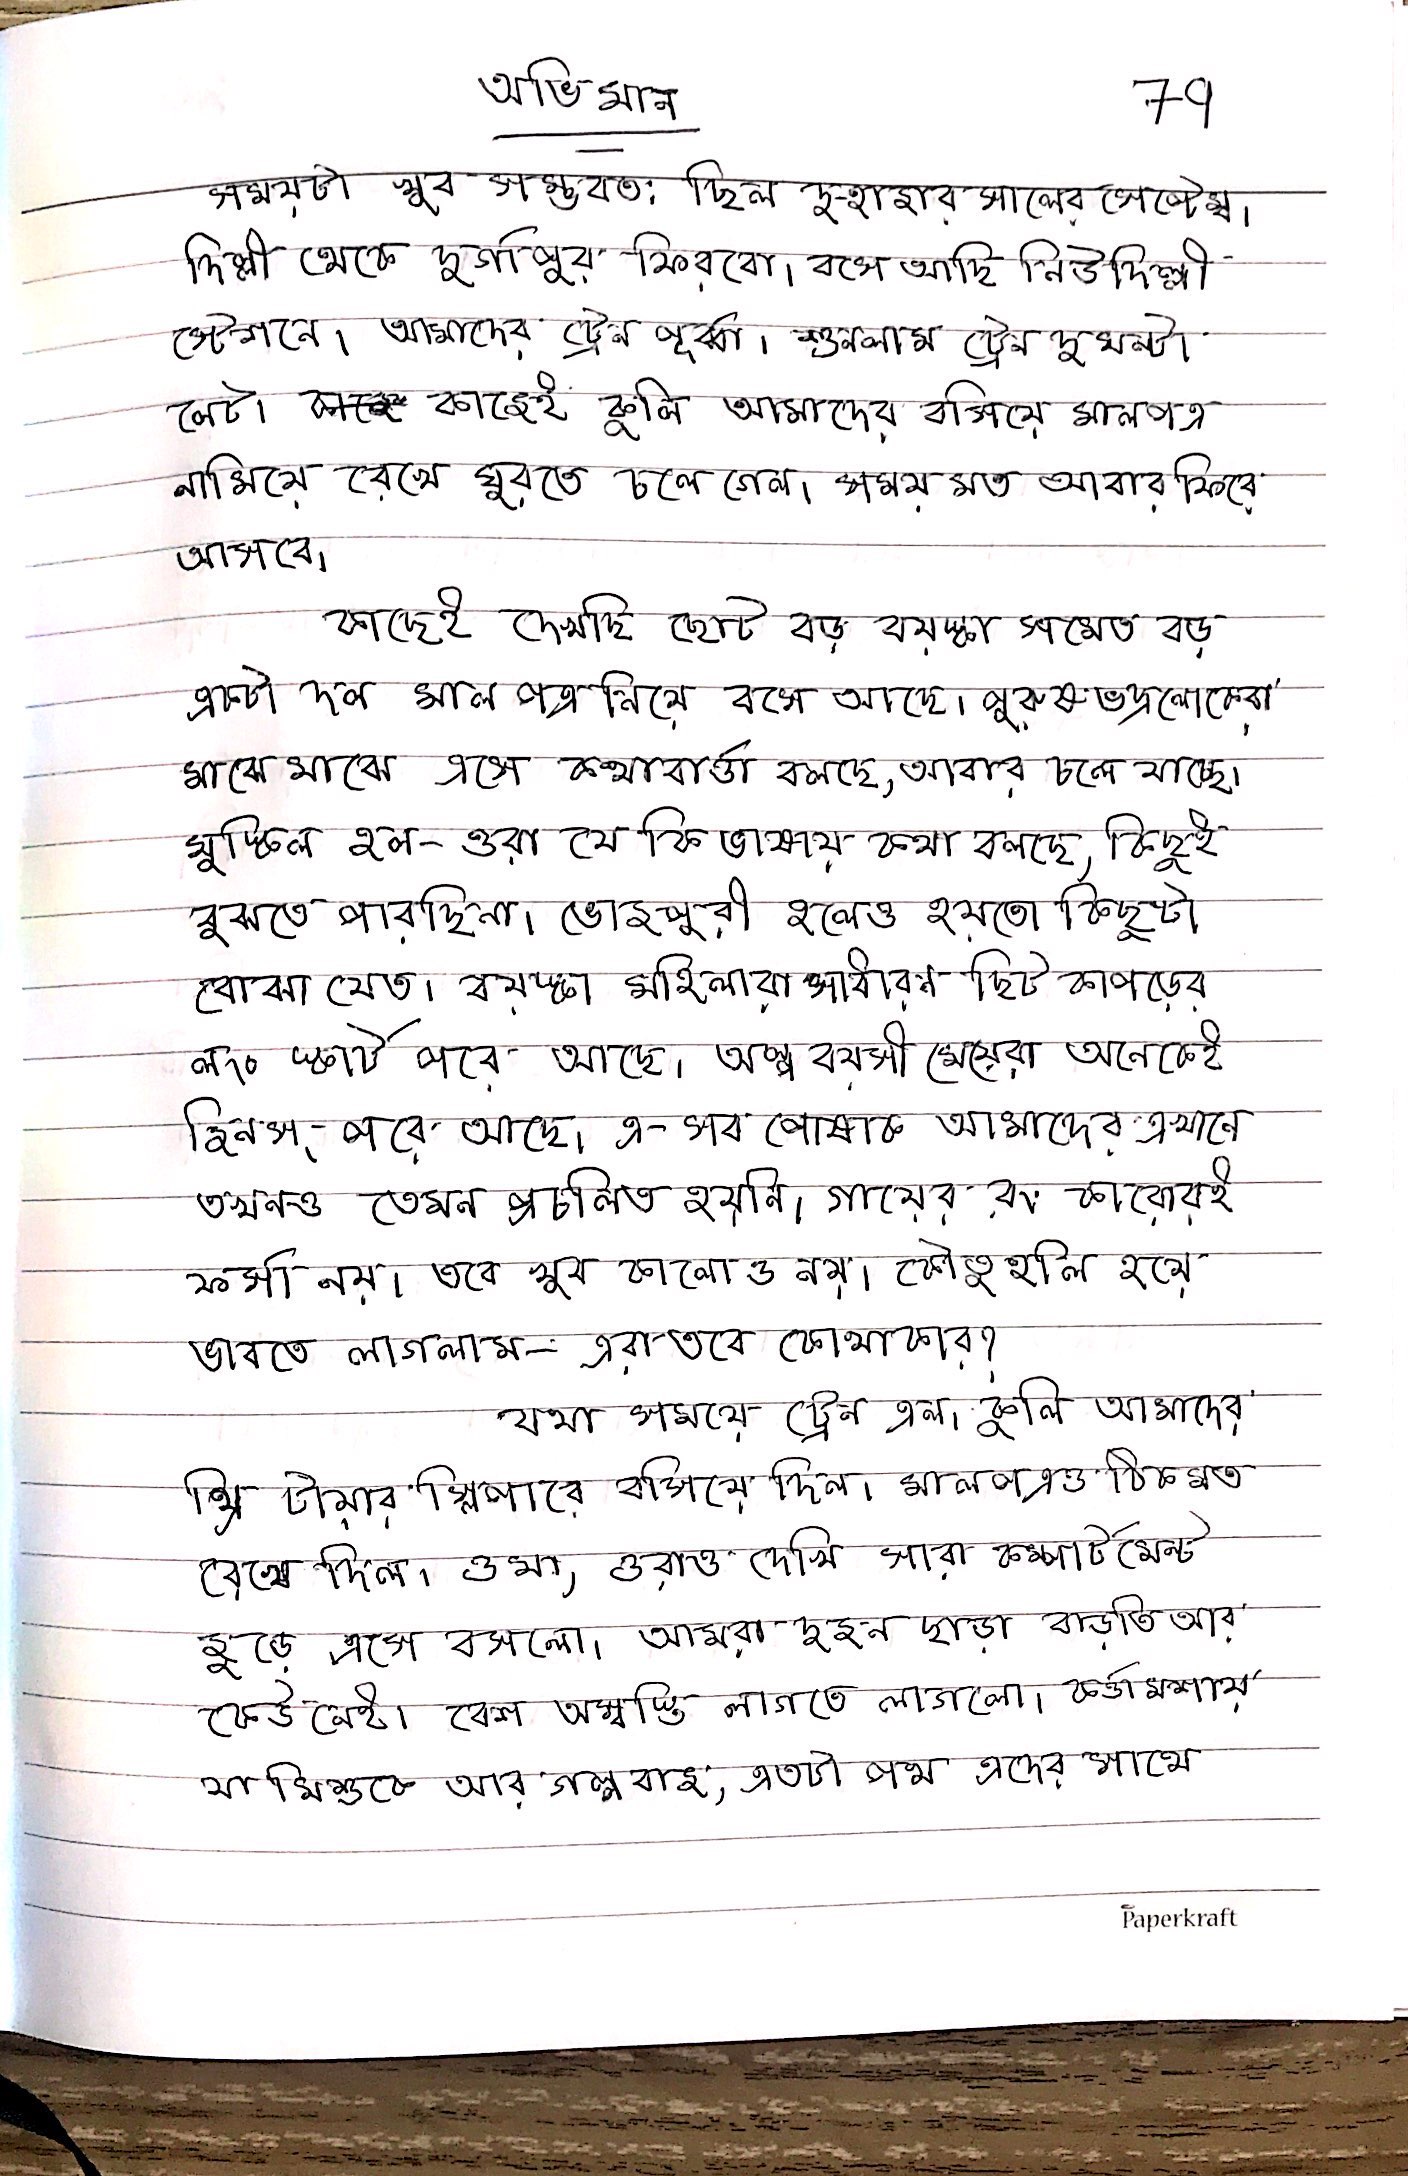 অভিমান
79
সময়টা খুব সম্ভবতঃ ছিল দু-হাজার সালের সেপ্টেম্ব।
দিল্লী থেকে দুর্গাপুর ফিরবো। বসে আছি নিউদিল্লী
স্টেশনে। আমাদের ট্রেন পূর্ব্বা। শুনলাম ট্রেন দুঘন্টা
লেট। কাছেই কুলি আমাদের বসিয়ে মালপত্র
নামিয়ে রেখে ঘুরতে চলে গেল। সময় মত আবার ফিরে
আসবে।
কাছেই দেখছি ছোট বড় বয়স্কা সমেত বড়
একটা দল মাল পত্র নিয়ে বসে আছে। পুরুষ ভদ্রলোকেরা
মাঝে মাঝে এসে কথাবার্ত্তা বলছে, আবার চলে যাচ্ছে।
মুস্কিল হল- ওরা যে কি ভাষায় কথা বলছে, কিছুই
বুঝতে পারছিনা। ভোজপুরী হলেও হয়তো কিছুটা
বোঝা যেত। বয়স্কা মহিলারা সাধারন ছিট কাপড়ের
লং স্কার্ট পরে আছে। অল্প বয়সী মেয়েরা অনেকেই
জিনস্- পরে আছে। এ- সব পোষাক আমাদের এখানে
তখনও তেমন প্রচলিত হয়নি। গায়ের রং কারোরই
ফর্সা নয়। তবে খুব কালোও নয়। কৌতুহলি হয়ে
ভাবতে লাগলাম- এরা তবে কোথাকার?
যথা সময়ে ট্রেন এল। কুলি আমাদের
থ্রি টায়ার স্লিপারে বসিয়ে দিল। মালপত্রও ঠিকমত
রেখে দিল। ওমা, ওরাও দেখি সারা কম্পার্টমেন্ট
জুড়ে এসে বসলো। আমরা দুজন ছাড়া বাড়তি আর
কেউ নেই। বেশ অস্বস্তি লাগতে লাগলো। কর্ত্তামশায়
যা মিশুকে আর গল্পবাজ, এতটা পথ এদের সাথে
Paperkraft